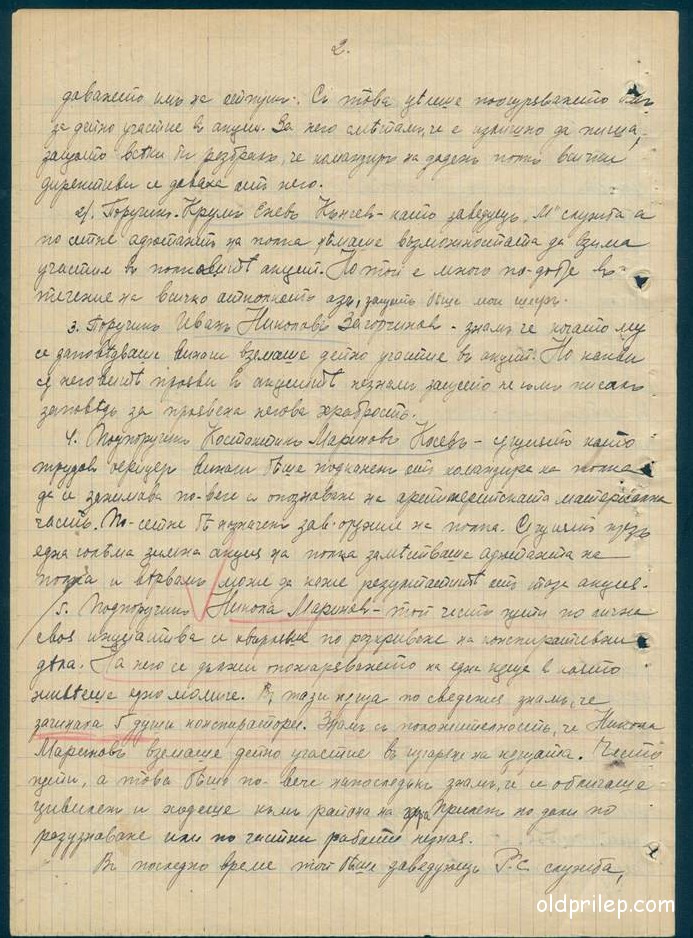 2.
даването имъ на отпуск. Съ това целеше поощряването имъ
за дейно участие въ акции. За него смѣтамъ, че е излишно да пиша,
защото всѣки би разбралъ, че командиръ на даденъ полкъ всички
директиви се даваха отъ него.
2/. Поручикъ Крумъ Еневъ Кънчевъ - като заведующъ „М" служба а
по сетне адютантъ на полка имаше възможностьта да взима
участие въ полковитѣ акции. Но той е много по-добре въ
течение на всичко отколкото азъ, защото бѣше мой шефъ.
3. Поручикъ Иванъ Николовъ Загорчиновъ - зная че когато му
се заповѣдваше винаги вземаше дейно участие въ акции. Но какви
сѫ неговитѣ прояви въ акциитѣ незнамъ защото не съмъ писалъ
заповѣдь за проявена негова храбрость.
4. Подпоручикъ Костантинъ Мариновъ Косевъ - същиятъ като
трудовъ офицеръ винаги бѣше подканенъ отъ командира на полка
да се занимава по-вече съ опознаване на артилерийската материална
часть. По-сетне бѣ назначенъ зав. оружие на полка. Същиятъ презъ
една голѣма зимна акция на полка замѣстваше адютанта на
полка и вѣрвамъ може да каже резултатитѣ отъ тази акция.
5. Подпоручикъ Никола Мариновъ - той често пѫти по лична
своя инициатива и по разкриване на конспиративни
дѣла. На него се дължи опожаряването на една къща в която
живѣеше едно момиче. Въ тази къща по сведения знамъ, че
загинаха 5 души конспиратори. Знамъ съ положителность, че Никола
Мариновъ вземаше дейно участие въ изгаряне на къщата. Често
пѫти, а това бѣше по-вече напоследъкъ знамъ, че се обличаше
цивиленъ и ходеше къмъ района на гр. Прилепъ но дали по
разузнаване или по частни работи незная.
Въ последно време той бѣше заведующъ Р.С. служба,
oldprilep.com